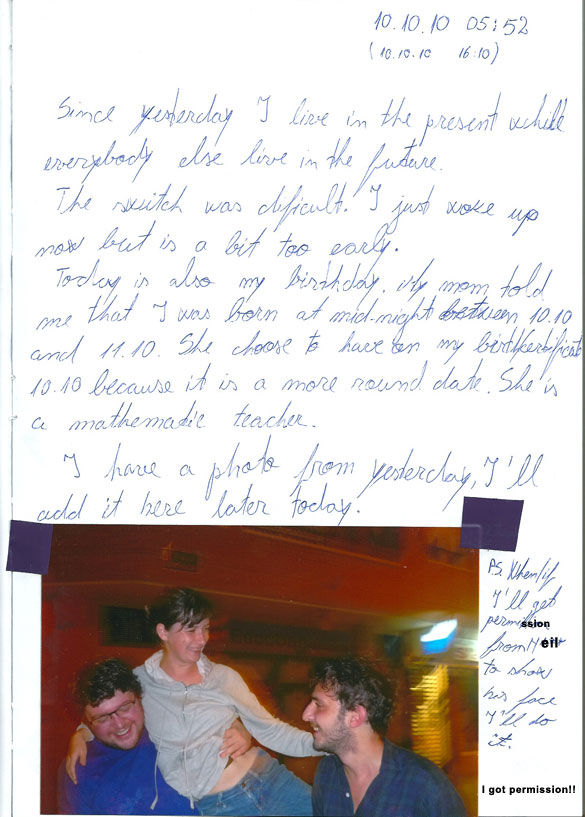 10.10.10 05:52
(10.10.10 16:10)
Since yesterday I live in the present while
everybody else live in the future.
The switch was dificult. I just woke up
now but is a bit too early.
Today is also my birthday. My mom told
me that I was born at mid-night between 10.10
and 11.10. She choose to have on my birthcertificate
10.10 because it is a more round date. She is
a mathematic teacher.
I have a photo from yesterday, I'll
add it here later today.
PS. When/if
I'll get
permission
from Neil
to show
his face
I'll do
it.
I got permission!!